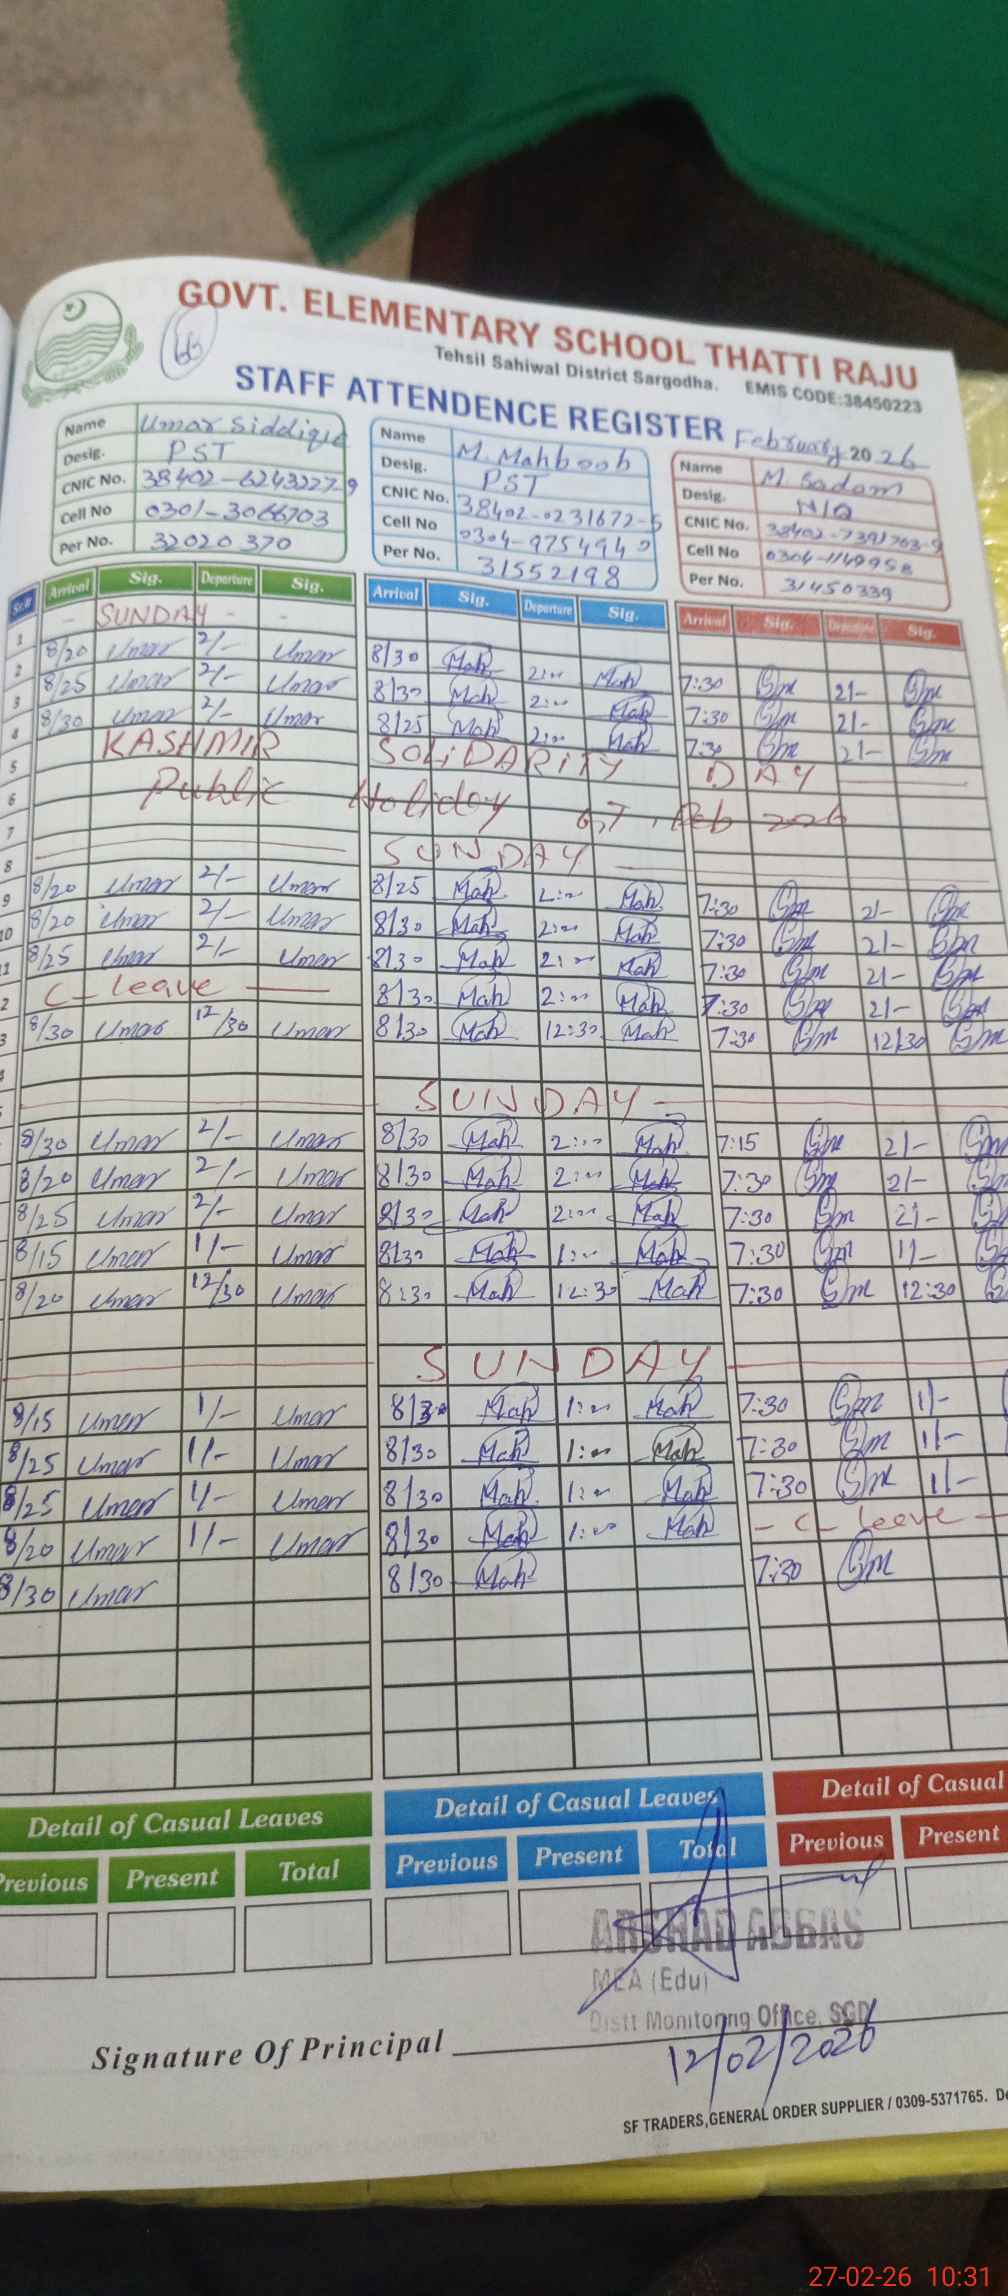 GOVT. ELEMENTARY SCHOOL THATTI RAJU
Tehsil Sahiwal District Sargodha. EMIS CODE:38450223
STAFF ATTENDENCE REGISTER February 2026
Name Umar Siddique Name M. Mahboob Name M Sadam
Desig. PST Desig. PST Desig. N/Q
CNIC No. 38402-6243227-9 CNIC No. 38402-0231672-5 CNIC No. 38402-7391763-9
Cell No 0301-3066703 Cell No 0304-9754940 Cell No 0304-1149958
Per No. 32020370 Per No. 31552198 Per No. 31450339
Sr.# Arrival Sig. Departure Sig. Arrival Sig. Departure Sig. Arrival Sig. Departure Sig.
1 - SUNDAY - -
2 8/20 Umar 2/- Umar 8/30 Mah 2:00 Mah 7:30 Sm 2/- Sm
3 8/25 Umar 2/- Umar 8/30 Mah 2:00 Mah 7:30 Sm 2/- Sm
4 8/30 Umar 2/- Umar 8/25 Mah 2:00 Mah 7:30 Sm 2/- Sm
5 KASHMIR SOLIDARITY DAY
6 Public Holiday 6,7, Feb
7
8 SUNDAY
9 8/20 Umar 2/- Umar 8/25 Mah 2:00 Mah 7:30 Sm 2/- Sm
10 8/20 Umar 2/- Umar 8/30 Mah 2:00 Mah 7:30 Sm 2/- Sm
1 8/25 Umar 2/- Umar 8/30 Mah 2:00 Mah 7:30 Sm 2/- Sm
2 C-leave 8/30 Mah 2:00 Mah 7:30 Sm 2/- Sm
3 8/30 Umar 12/30 Umar 8/30 Mah 12:30 Mah 7:30 Sm 12/30 Sm
SUNDAY
8/30 Umar 2/- Umar 8/30 Mah 2:00 Mah 7:15 Sm 2/- Sm
8/20 Umar 2/- Umar 8/30 Mah 2:00 Mah 7:30 Sm 2/-
8/25 Umar 2/- Umar 8/30 Mah 2:00 Mah 7:30 Sm 2/-
8/15 Umar 1/- Umar 8/30 Mah 1:00 Mah 7:30 Sm 1/-
8/20 Umar 12/30 Umar 8:30 Mah 12:30 Mah 7:30 Sm 12:30
SUNDAY
8/15 Umar 1/- Umar 8/30 Mah 1:00 Mah 7:30 Sm 1/-
8/25 Umar 1/- Umar 8/30 Mah 1:00 Mah 7:30 Sm 1/-
8/25 Umar 1/- Umar 8/30 Mah 1:00 Mah 7:30 Sm 1/-
8/20 Umar 1/- Umar 8/30 Mah 1:00 Mah - C-leave -
8/30 Umar 8/30 Mah 7:30 Sm
Detail of Casual Leaves Detail of Casual Leaves Detail of Casual
Previous Present Total Previous Present Total Previous Present
ARSHAD ABBAS
MEA (Edu)
Distt Monitoring Office, SGD
Signature Of Principal
12/02/2026
SF TRADERS,GENERAL ORDER SUPPLIER / 0309-5371765.
27-02-26 10:31